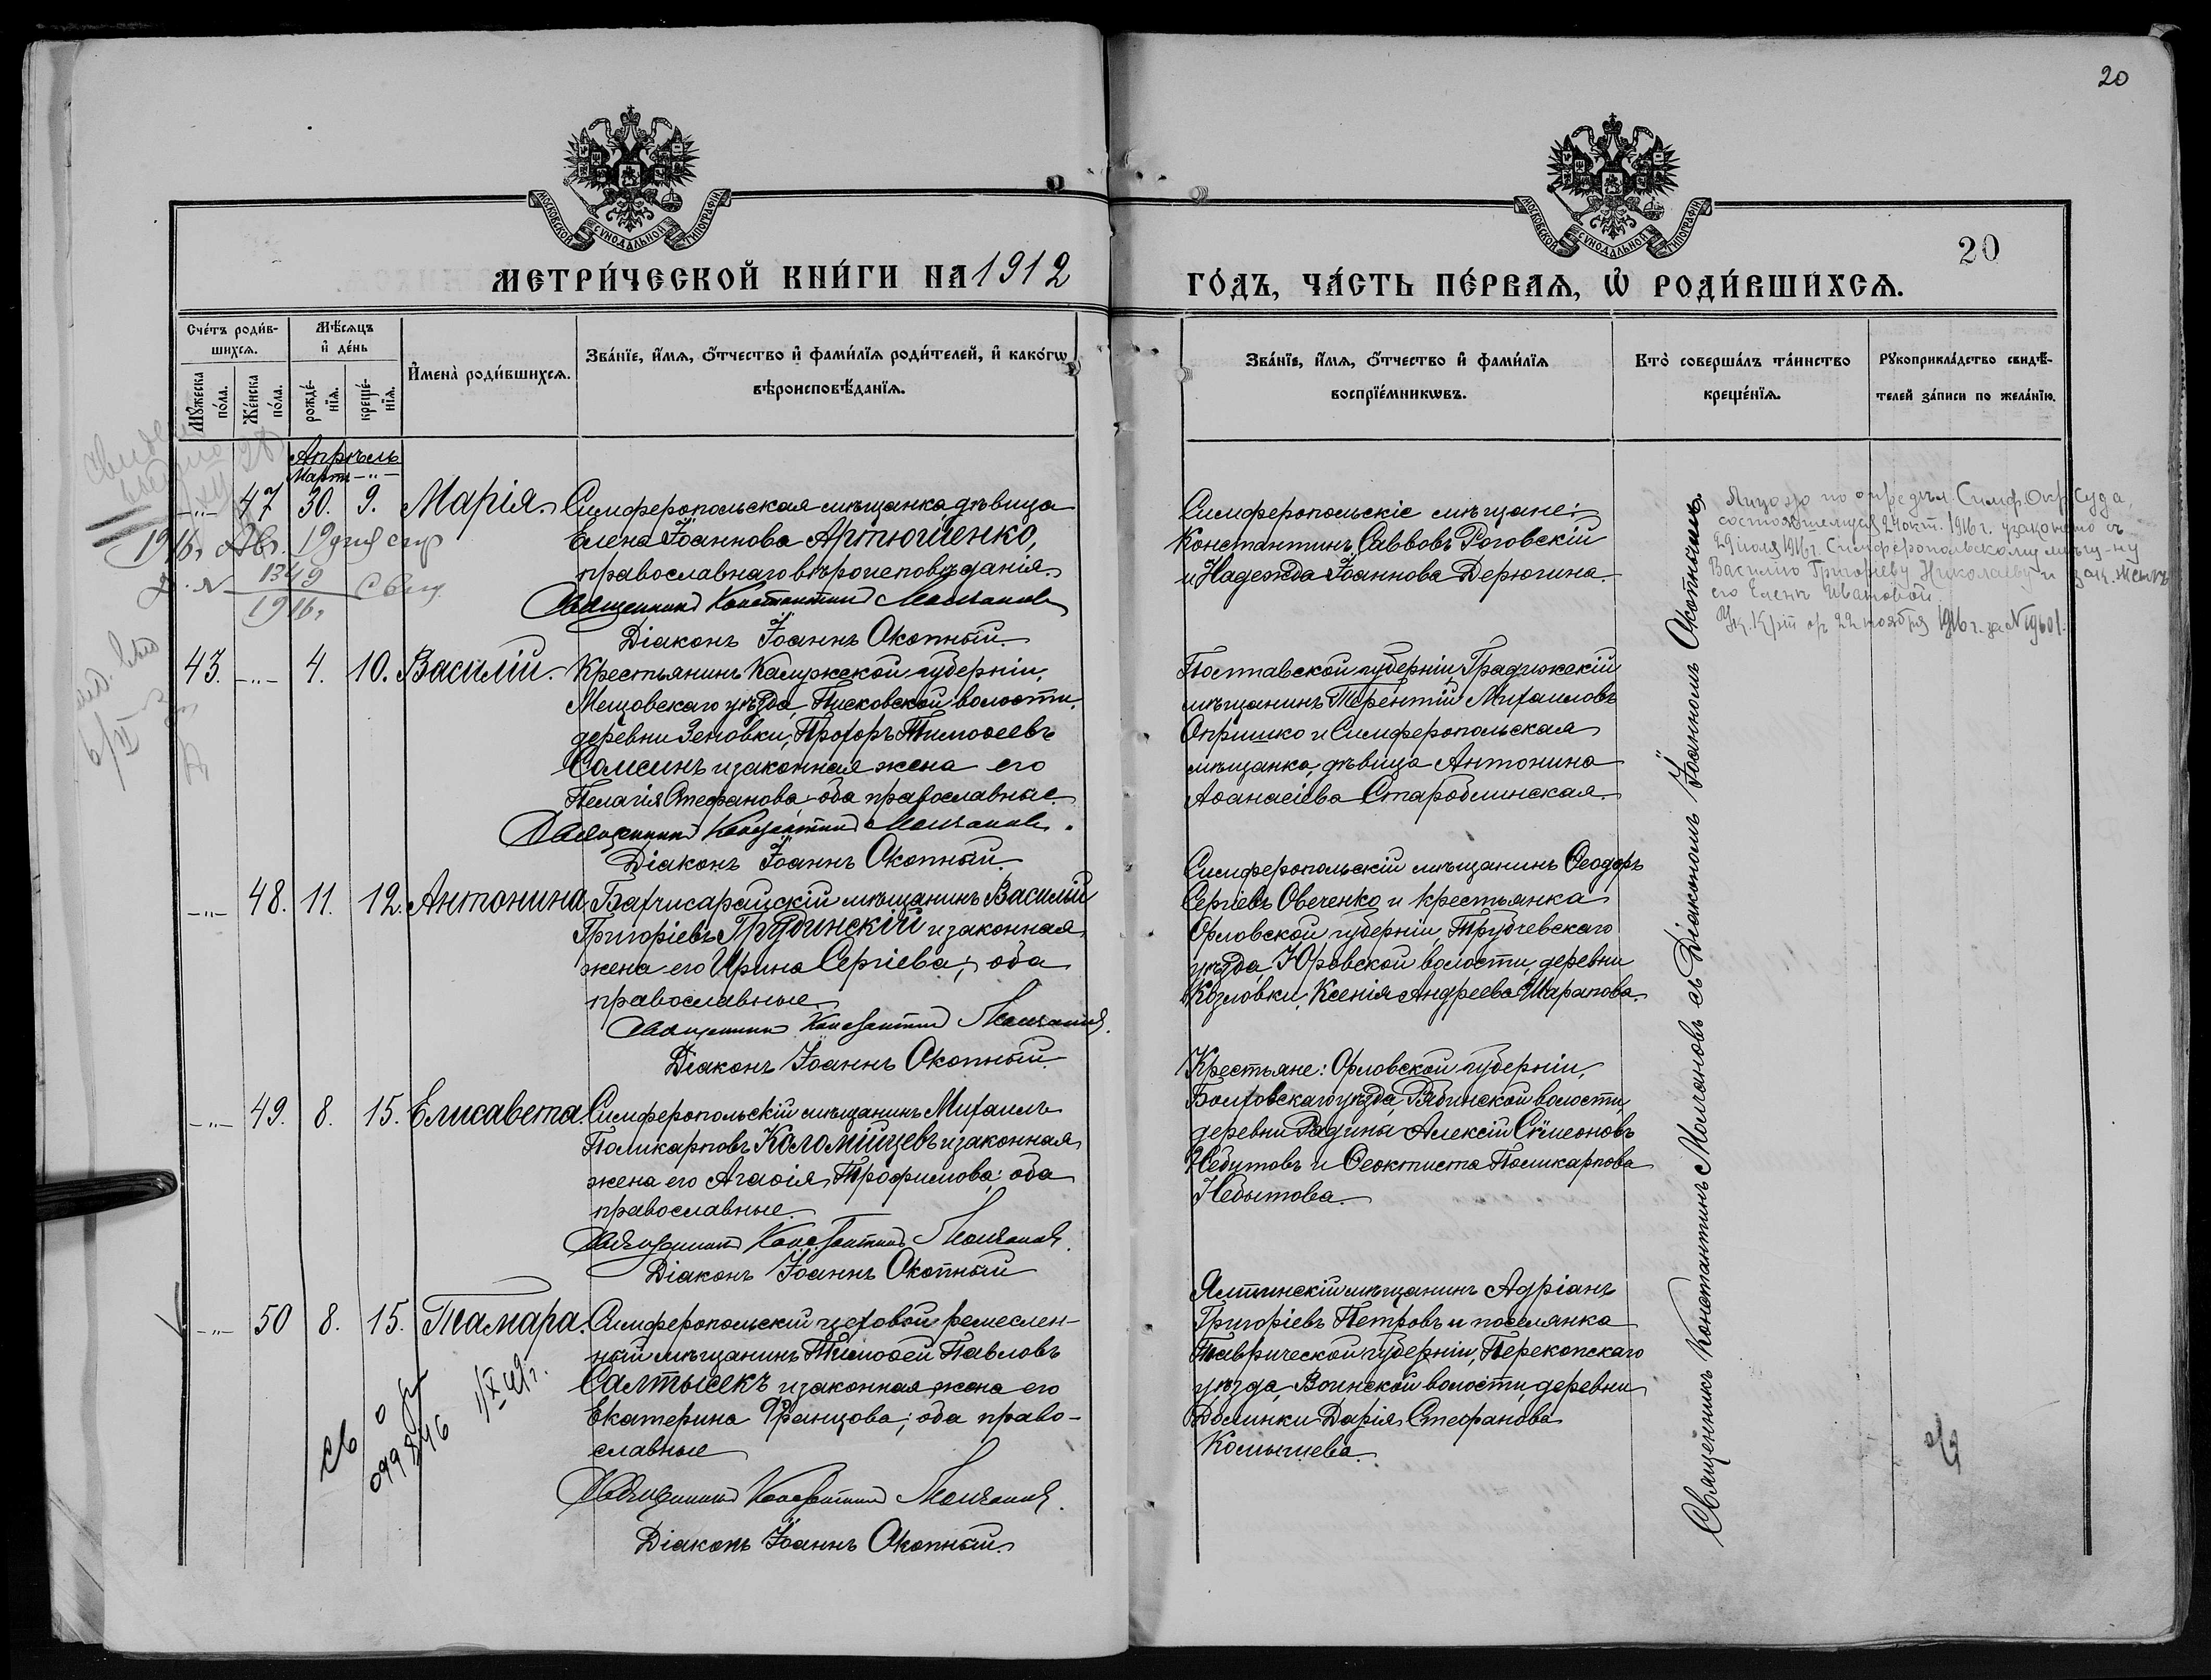 20
МОСКОВСКОЙ СѴНОДАЛЬНОЙ ТИПОГРАФІИ
МОСКОВСКОЙ СѴНОДАЛЬНОЙ ТИПОГРАФІИ
20
МЕТРИ́ЧЕСКОЙ КНИ́ГИ НА 1912
ГО́ДЪ, ЧА́СТЬ ПЕ́РВАѦ, Ѡ҆ РОДИ́ВШИХСѦ.
Сче́тъ роди́в-
шихсѧ.
Мꙋ́жеска по́ла.
Же́нска по́ла.
Мѣ́сѧцъ
и҆ де́нь
рожде́-
нїѧ.
креще́-
нїѧ.
И҆мена̀ роди́вшихсѧ.
Зва́нїе, и҆́мѧ, ѻ҆́тчество и҆ фами́лїѧ роди́телей, и҆ како́гѡ
вѣроисповѣ́данїѧ.
Зва́нїе, и҆́мѧ, ѻ҆́тчество и҆ фами́лїѧ
воспрїе́мникѡвъ.
Кто̀ соверша́лъ та́инство
креще́нїѧ.
Рꙋкоприкла́дство свидѣ́-
телей за́писи по жела́нїю.
Апрѣль
Мартъ -"-
-"- 47 30. 9. Марія.
Симферопольская мѣщанка, дѣвица
Елена Іоаннова Артюшенко,
православнаго вѣроисповѣданія.
Священникъ Константинъ Молчановъ
Діаконъ Іоаннъ Окопный.
Симферопольскіе мѣщане:
Константинъ Саввовъ Роговскій
и Надежда Іоаннова Дерюгина.
Лицо это по опредѣл. Симф. Окр. Суда,
состоявшемуся 24 окт. 1916 г. узаконено съ
29 іюля 1916 г. Симферопольскому мѣщ-ну
Василію Григорьеву Николаеву и зак. женѣ
его Еленѣ Ивановой.
22 ноября 1916 г. за №
1916 г. Авг. 12 дня
1349
1916 г.
43. -"- 4. 10. Василій.
Крестьянинъ Калужской губерніи,
Мещовскаго уѣзда, волости,
деревни Зеновки, Прохоръ Тимоѳеевъ
Самсинъ и законная жена его
Пелагія Стефанова; оба православные.
Священникъ Константинъ Молчановъ.
Діаконъ Іоаннъ Окопный.
Полтавской губерніи, Градижскій
мѣщанинъ Терентій Михаиловъ
Опришко и Симферопольская
мѣщанка, дѣвица Антонина
Аѳанасіева Староблинская.
-"- 48. 11. 12. Антонина
Бахчисарайскій мѣщанинъ Василій
Григоріевъ Грудинскій и законная
жена его Ирина Сергіева; оба
православные.
Священникъ Константинъ Молчановъ.
Діаконъ Іоаннъ Окопный.
Симферопольскій мѣщанинъ Ѳеодоръ
Сергіевъ Овеченко и крестьянка
Орловской губерніи, Трубчевскаго
уѣзда, Юровской волости, деревни
Козловки, Ксенія Андреева Шарапова.
-"- 49. 8. 15. Елисавета.
Симферопольскій мѣщанинъ Михаилъ
Поликарповъ Коломійцевъ и законная
жена его Агаѳія Трофимова; оба
православные.
Священникъ Константинъ Молчановъ.
Діаконъ Іоаннъ Окопный
Крестьяне: Орловской губерніи,
Болховскаго уѣзда, волости,
деревни Радина Алексій Сѵмеоновъ
Небытовъ и Ѳеоктиста Поликарпова
Небытова.
-"- 50 8. 15. Тамара.
Симферопольскій цеховой ремеслен-
ный мѣщанинъ Тимоѳей Павловъ
Салтысекъ и законная жена его
Екатерина Францова; оба право-
славные
Священникъ Константинъ Молчановъ.
Діаконъ Іоаннъ Окопный.
Ялтинскій мѣщанинъ Адріанъ
Григоріевъ Петровъ и поселянка
Таврической губерніи, Перекопскаго
уѣзда, Воинской волости, деревни
Долинки Дарія Стефанова
Колычева.
Священникъ Константинъ Молчановъ съ Діакономъ Іоанномъ Окопнымъ.